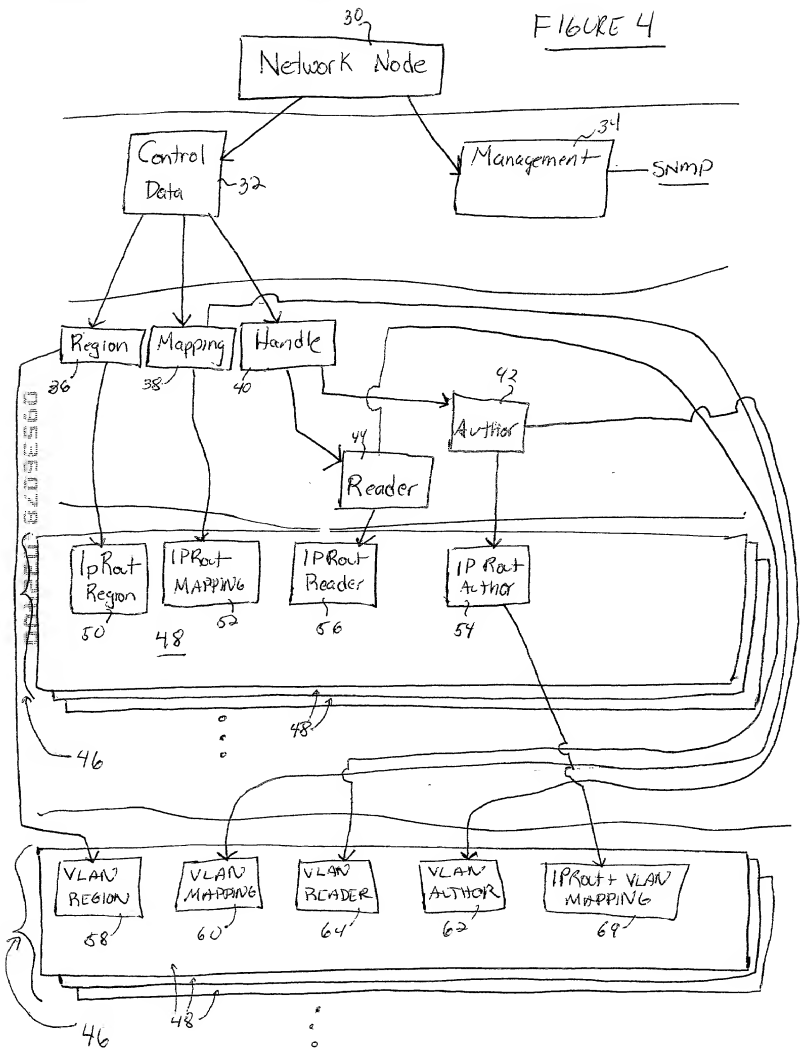 30
FIGURE 4
Network Node
Control
Data
32
Management
34
SNMP
Region
Mapping
Handle
36
38
40
42
Author
44
Reader
IpRout
Region
IPRout
MAPPING
IPRout
Reader
IP Rout
Author
50
52
56
54
48
48
46
VLAN
REGION
VLAN
MAPPING
VLAN
READER
VLAN
AUTHOR
IPRout + VLAN
MAPPING
58
60
64
62
69
48
46